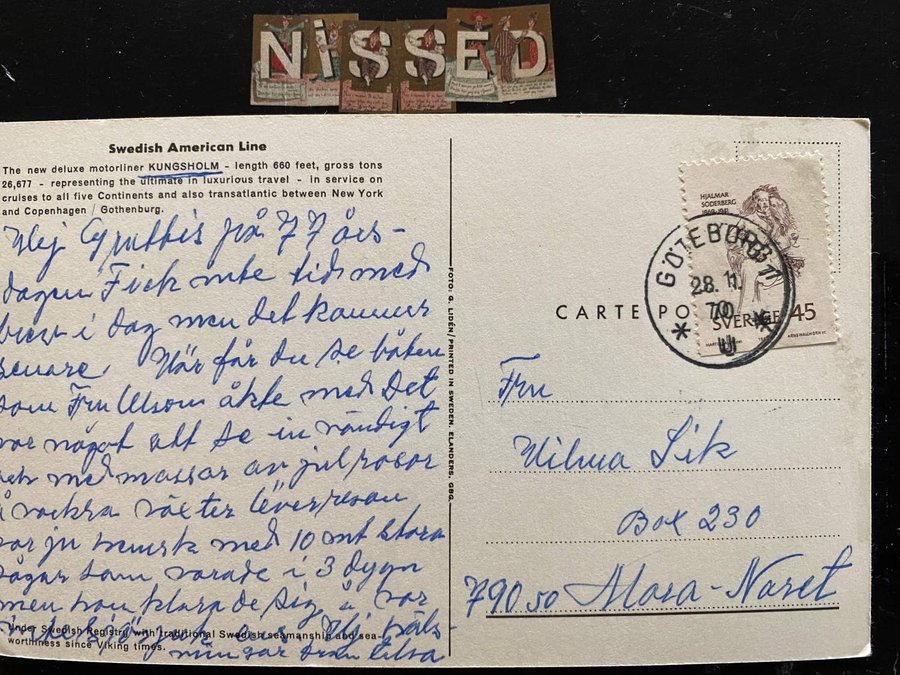 NiSSED
Swedish American Line
The new deluxe motorliner KUNGSHOLM - length 660 feet, gross tons
26,677 - representing the ultimate in luxurious travel - in service on
cruises to all five Continents and also transatlantic between New York
and Copenhagen / Gothenburg.
Hej Grattis på 77 års-
dagen Fick inte tid med
brev i dag men det kommer
senare. Här får du se båten
som Fru Olsson åkte med Det
var något att se in vändigt
med massor av julrosor
å vackra växter Överresan
var ju hemsk med 10 mt stora
vågar som varade i 3 dygn
men hon klara de sig å var
Hej häls-
ningar från Elsa
Under Swedish Registry with traditional Swedish seamanship and sea-
worthiness since Viking times.
FOTO: G. LIDÉN/PRINTED IN SWEDEN, ELANDERS, GBG.
HJALMAR
SÖDERBERG
1869-1941
GÖTEBORG 1
28.11.
70
SVERIGE 45
CARTE PO
Fru
Wilma Sik
Box 230
79050 Mora-Noret